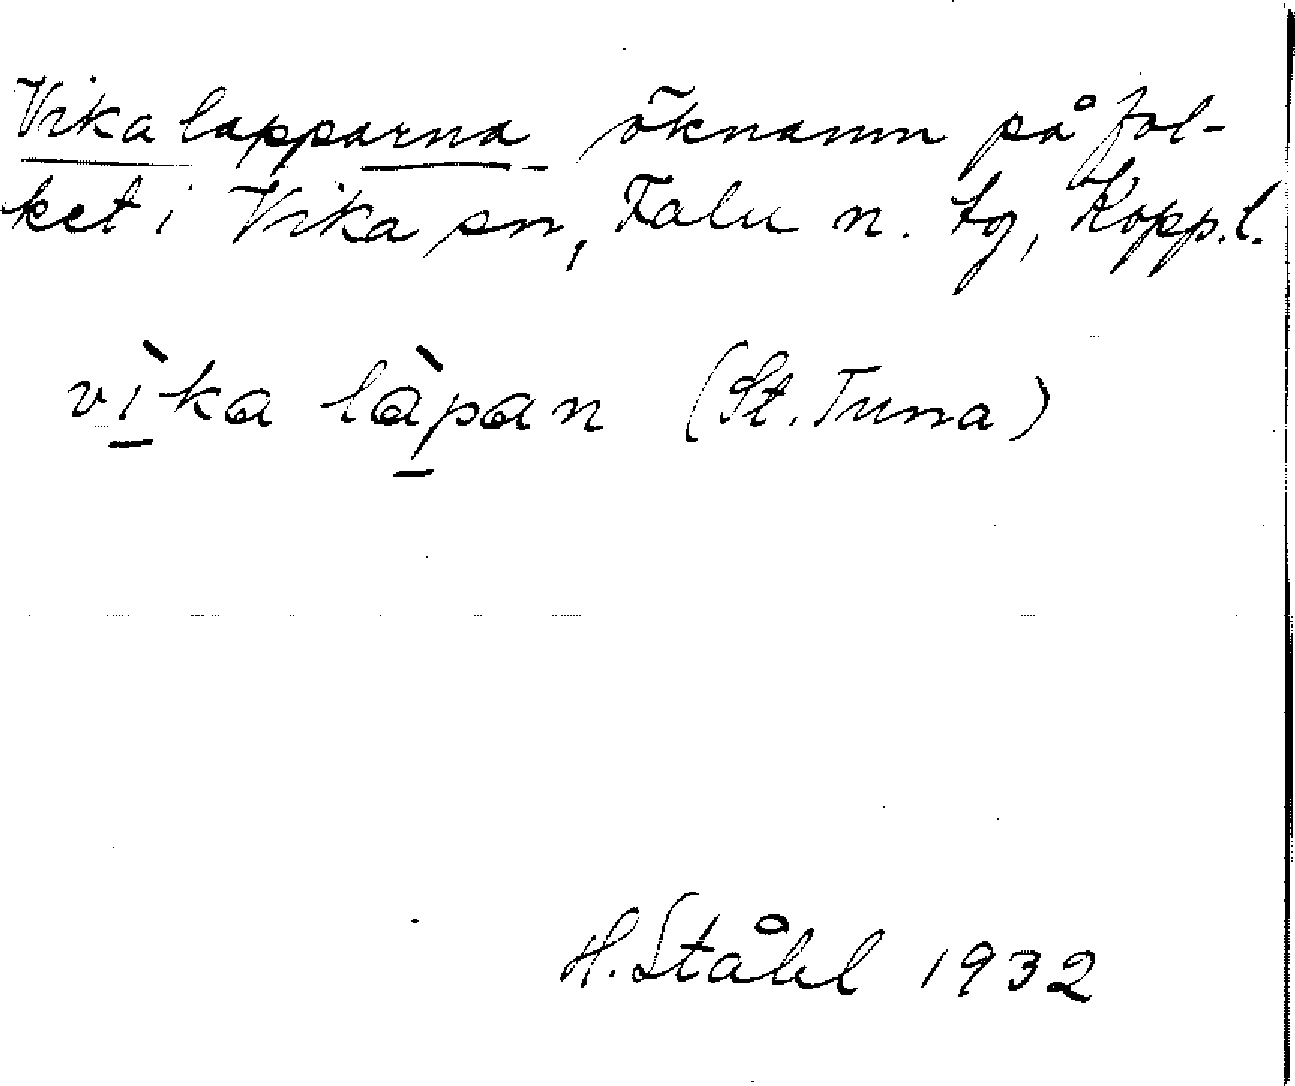 Vikalapparna öknamn på fol-
ket i Vika sn, Falu n. tg, Kopp.l.
vìka làpan (St. Tuna)
H. Ståhl 1932